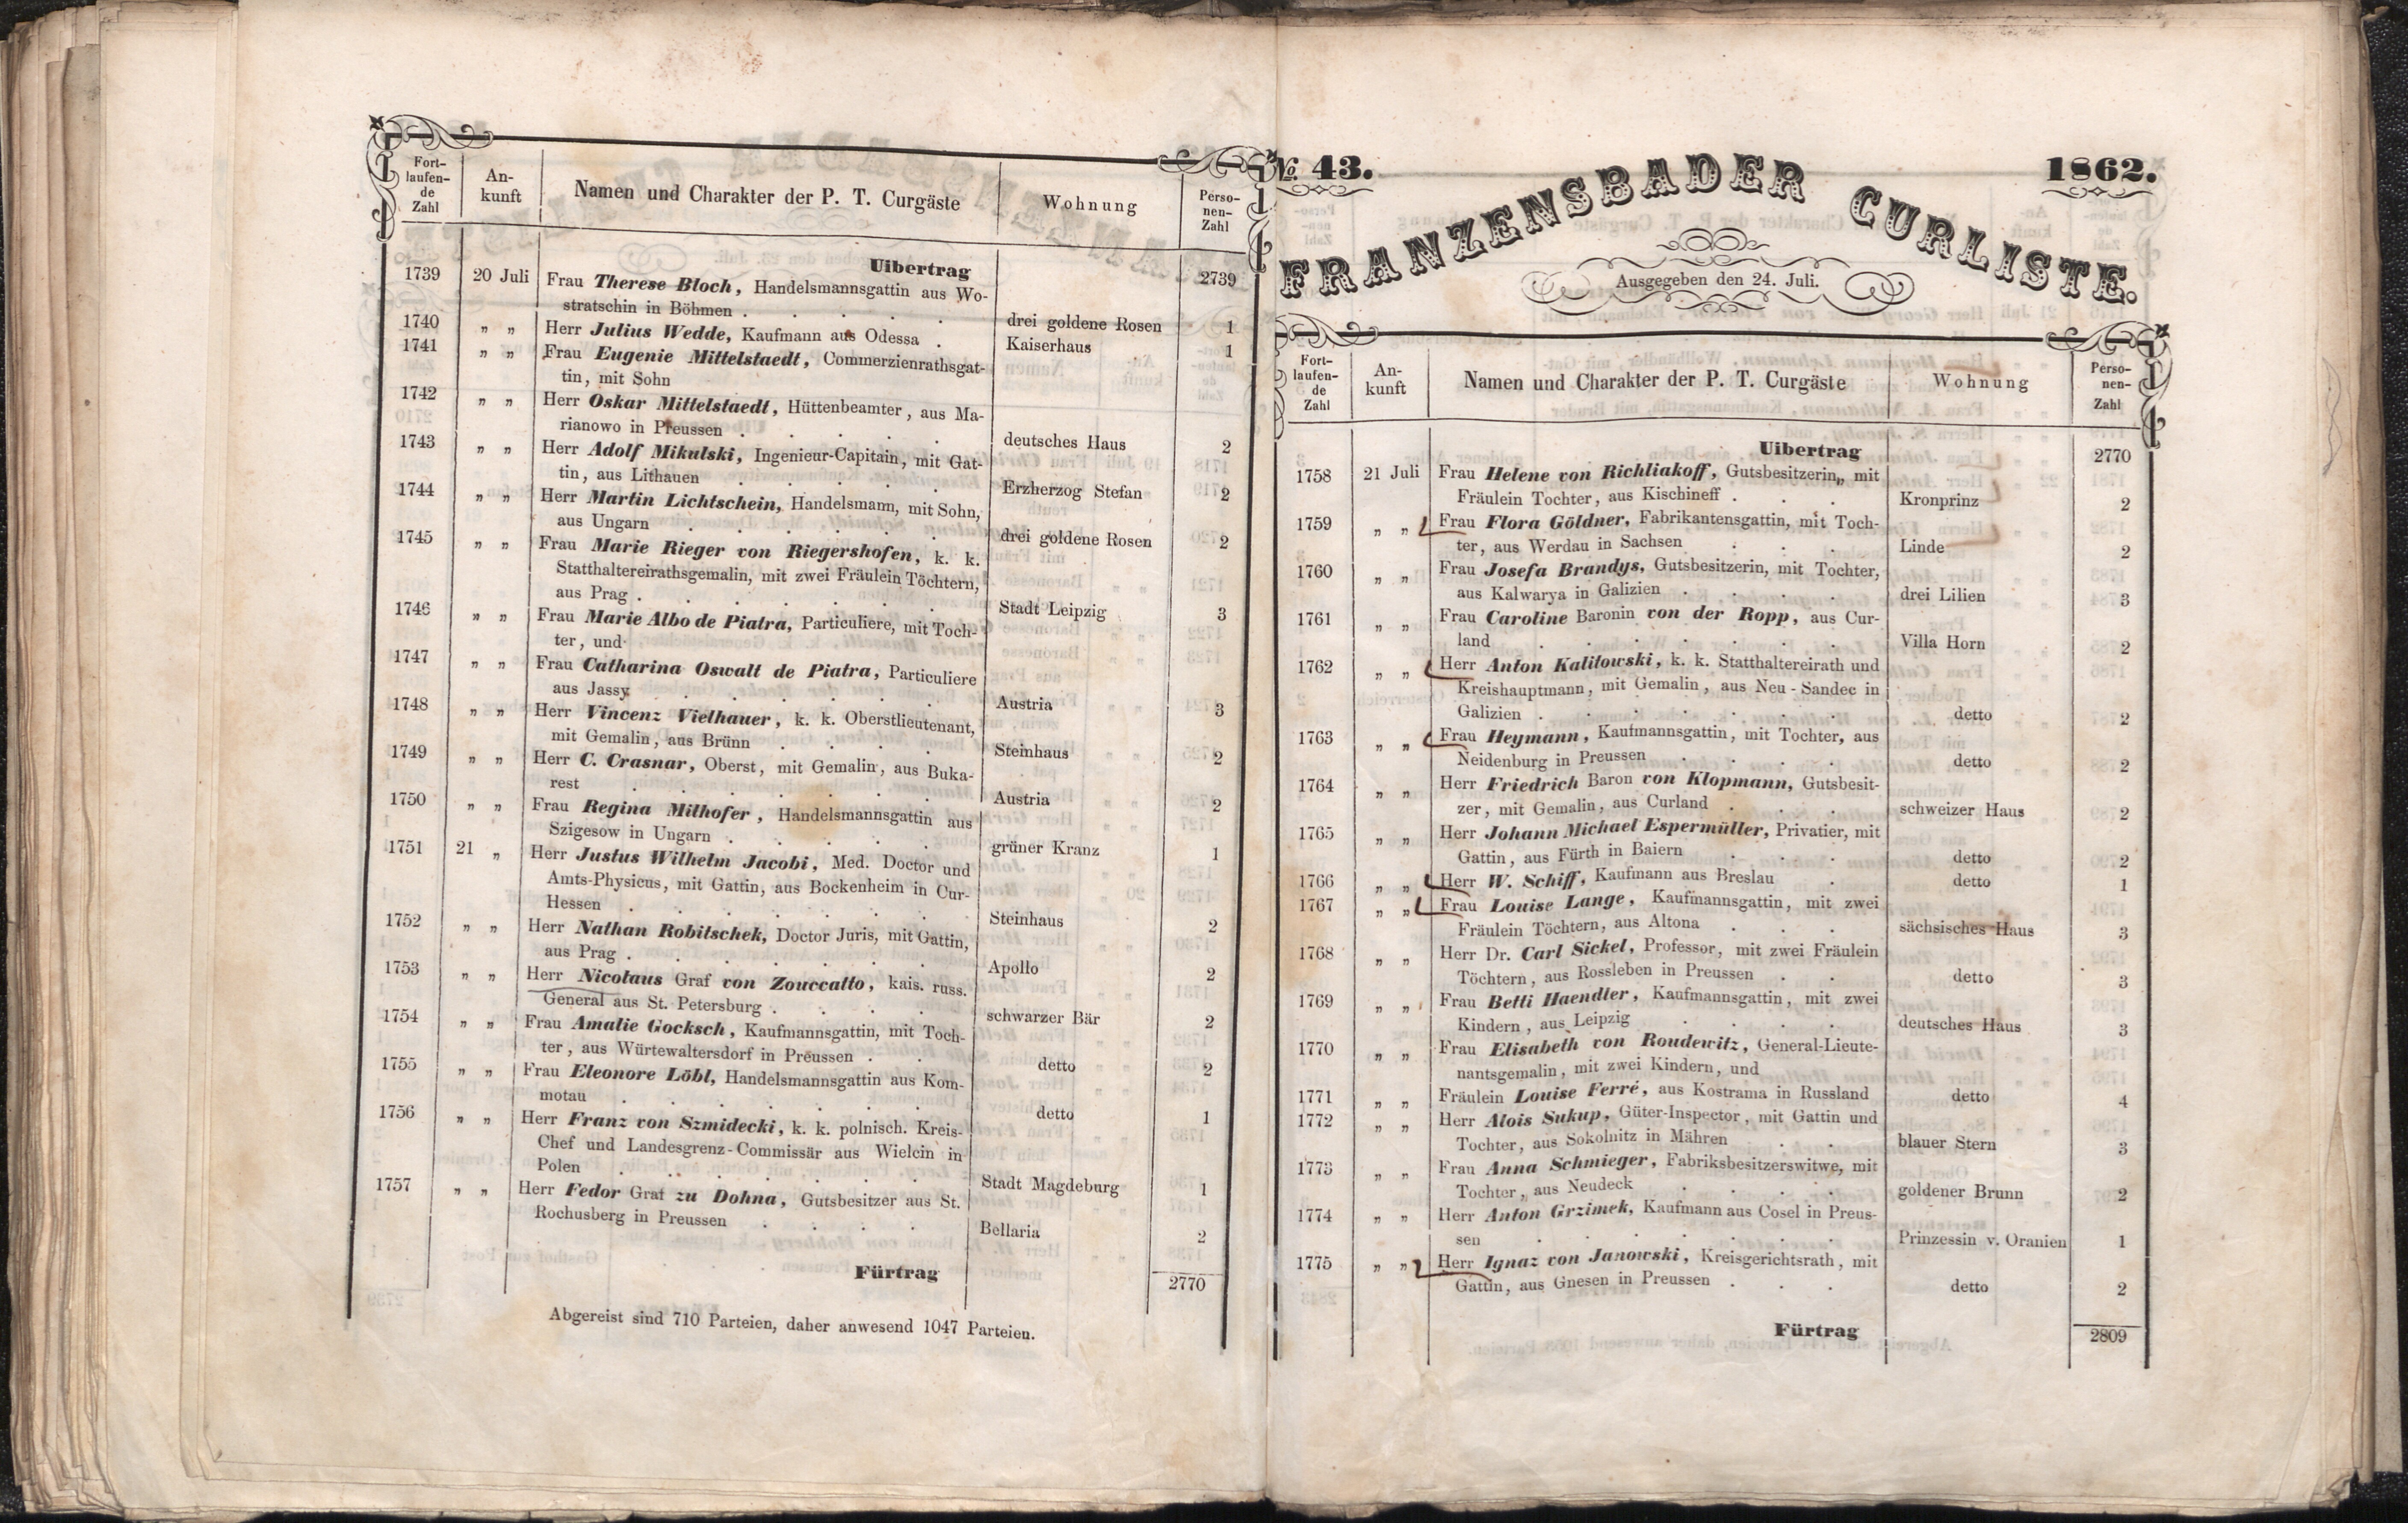 Fort-
laufen-
de
Zahl
An-
kunft
Namen und Charakter der P. T. Curgäste
Wohnung
Perso-
nen-
Zahl
Uibertrag 2739
1739 20 Juli Frau Therese Bloch, Handelsmannsgattin aus Wo-
stratschin in Böhmen . . . . . drei goldene Rosen 1
1740 „ „ Herr Julius Wedde, Kaufmann aus Odessa . Kaiserhaus 1
1741 „ „ Frau Eugenie Mittelstaedt, Commerzienrathsgat-
tin, mit Sohn
1742 „ „ Herr Oskar Mittelstaedt, Hüttenbeamter, aus Ma-
rianowo in Preussen . . . . . deutsches Haus 2
1743 „ „ Herr Adolf Mikulski, Ingenieur-Capitain, mit Gat-
tin, aus Lithauen . . . . . Erzherzog Stefan 2
1744 „ „ Herr Martin Lichtschein, Handelsmann, mit Sohn,
aus Ungarn . . . . . . drei goldene Rosen 2
1745 „ „ Frau Marie Rieger von Riegershofen, k. k.
Statthaltereirathsgemalin, mit zwei Fräulein Töchtern,
aus Prag . . . . . . . Stadt Leipzig 3
1746 „ „ Frau Marie Albo de Piatra, Particuliere, mit Toch-
ter, und
1747 „ „ Frau Catharina Oswalt de Piatra, Particuliere
aus Jassy . . . . . . Austria 3
1748 „ „ Herr Vincenz Vielhauer, k. k. Oberstlieutenant,
mit Gemalin, aus Brünn . . . . Steinhaus 2
1749 „ „ Herr C. Crasnar, Oberst, mit Gemalin, aus Buka-
rest . . . . . . . Austria 2
1750 „ „ Frau Regina Milhofer, Handelsmannsgattin aus
Szigesow in Ungarn . . . . . grüner Kranz 1
1751 21 „ Herr Justus Wilhelm Jacobi, Med. Doctor und
Amts-Physicus, mit Gattin, aus Bockenheim in Cur-
Hessen . . . . . . . Steinhaus 2
1752 „ „ Herr Nathan Robitschek, Doctor Juris, mit Gattin,
aus Prag . . . . . . . Apollo 2
1753 „ „ Herr Nicolaus Graf von Zouccatto, kais. russ.
General aus St. Petersburg . . . . schwarzer Bär 2
1754 „ „ Frau Amalie Gocksch, Kaufmannsgattin, mit Toch-
ter, aus Würtewaltersdorf in Preussen . . detto 2
1755 „ „ Frau Eleonore Löbl, Handelsmannsgattin aus Kom-
motau . . . . . . . detto 1
1756 „ „ Herr Franz von Szmidecki, k. k. polnisch. Kreis-
Chef und Landesgrenz-Commissär aus Wielcin in
Polen . . . . . . . Stadt Magdeburg 1
1757 „ „ Herr Fedor Graf zu Dohna, Gutsbesitzer aus St.
Rochusberg in Preussen . . . . Bellaria 2
Fürtrag 2770
Abgereist sind 710 Parteien, daher anwesend 1047 Parteien.
No. 43. 1862.
FRANZENSBADER CURLISTE.
Ausgegeben den 24. Juli.
Fort-
laufen-
de
Zahl
An-
kunft
Namen und Charakter der P. T. Curgäste
Wohnung
Perso-
nen-
Zahl
Uibertrag 2770
1758 21 Juli Frau Helene von Richliakoff, Gutsbesitzerin„ mit
Fräulein Tochter, aus Kischineff . . . Kronprinz 2
1759 „ „ Frau Flora Göldner, Fabrikantensgattin, mit Toch-
ter, aus Werdau in Sachsen . . . Linde 2
1760 „ „ Frau Josefa Brandys, Gutsbesitzerin, mit Tochter,
aus Kalwarya in Galizien . . . . drei Lilien 3
1761 „ „ Frau Caroline Baronin von der Ropp, aus Cur-
land . . . . . . . Villa Horn 2
1762 „ „ Herr Anton Kalitowski, k. k. Statthaltereirath und
Kreishauptmann, mit Gemalin, aus Neu-Sandec in
Galizien . . . . . . . detto 2
1763 „ „ Frau Heymann, Kaufmannsgattin, mit Tochter, aus
Neidenburg in Preussen . . . . detto 2
1764 „ „ Herr Friedrich Baron von Klopmann, Gutsbesit-
zer, mit Gemalin, aus Curland . . . schweizer Haus 2
1765 „ „ Herr Johann Michael Espermüller, Privatier, mit
Gattin, aus Fürth in Baiern . . . detto 2
1766 „ „ Herr W. Schiff, Kaufmann aus Breslau . detto 1
1767 „ „ Frau Louise Lange, Kaufmannsgattin, mit zwei
Fräulein Töchtern, aus Altona . . . sächsisches Haus 3
1768 „ „ Herr Dr. Carl Sickel, Professor, mit zwei Fräulein
Töchtern, aus Rossleben in Preussen . . detto 3
1769 „ „ Frau Betti Haendler, Kaufmannsgattin, mit zwei
Kindern, aus Leipzig . . . . deutsches Haus 3
1770 „ „ Frau Elisabeth von Roudewitz, General-Lieute-
nantsgemalin, mit zwei Kindern, und
1771 „ „ Fräulein Louise Ferré, aus Kostrama in Russland detto 4
1772 „ „ Herr Alois Sukup, Güter-Inspector, mit Gattin und
Tochter, aus Sokolnitz in Mähren . . blauer Stern 3
1773 „ „ Frau Anna Schmieger, Fabriksbesitzerswitwe, mit
Tochter, aus Neudeck . . . . goldener Brunn 2
1774 „ „ Herr Anton Grzimek, Kaufmann aus Cosel in Preus-
sen . . . . . . . Prinzessin v. Oranien 1
1775 „ „ Herr Ignaz von Janowski, Kreisgerichtsrath, mit
Gattin, aus Gnesen in Preussen . . . detto 2
Fürtrag 2809